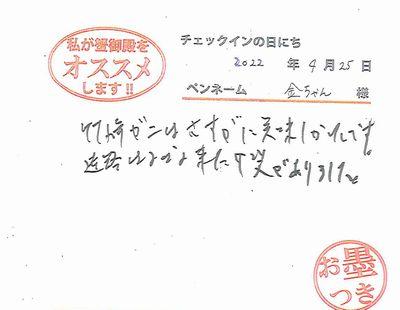 私が蟹御殿を
オススメ
します!!
チェックインの日にち
2022 年 4月 25日
ペンネーム 金ちゃん 様
竹崎ガニはさすがに美味しかったです。
遠路はるばる来た甲斐がありました。
お墨
つき